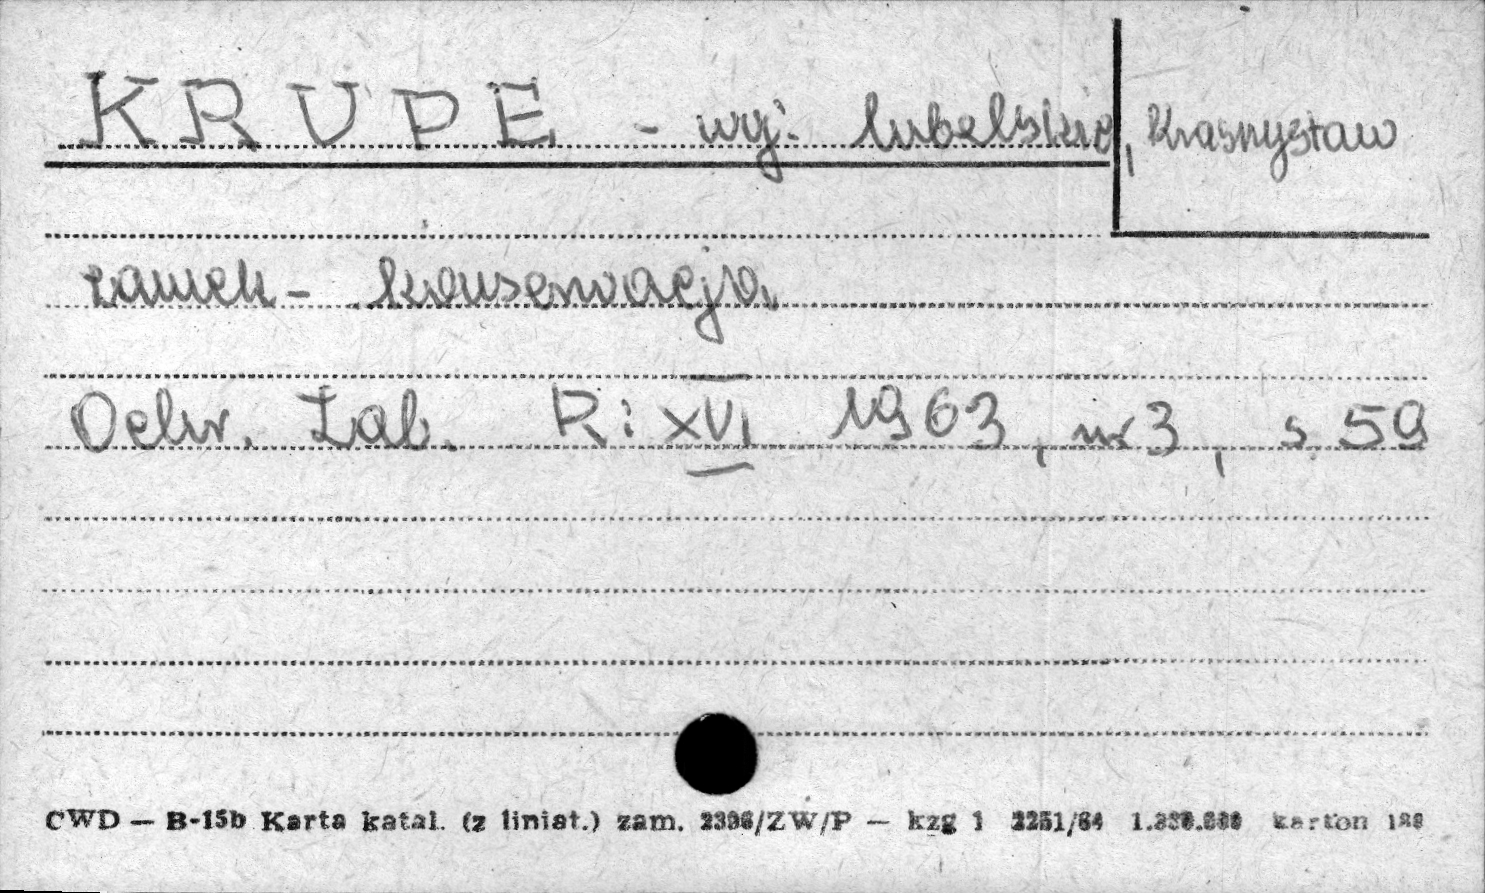 KRUPE - woj. lubelskie, Krasnystaw
zamek - konserwacja
Ochr. Zab. R: XVI 1963, nr 3, s 59
CWD — B-15b Karta katal. (z liniat.) zam. 2396/ZW/P — kzg 1 2251/64 karton